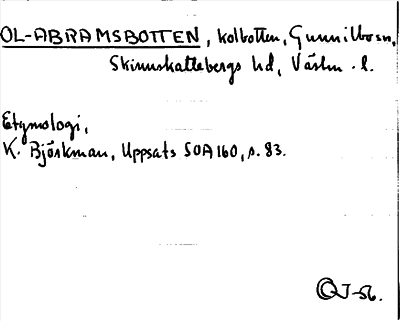 OL-ABRAMSBOTTEN, kolbotten, Gunnilbo sn,
Skinnskattebergs hd, Västm. l.
Etymologi,
K. Björkman, Uppsats SOA 160, s. 83.
OJ-56.